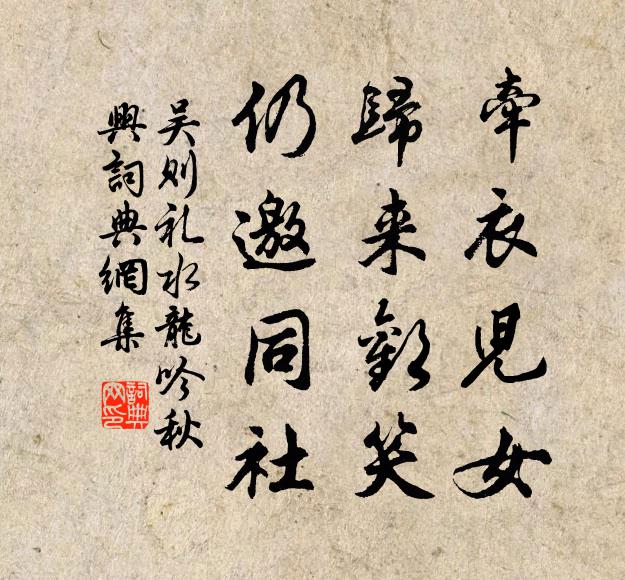 牽衣兒女
歸来歡笑
仍邀同社
吴则礼水龍吟秋
興詞典網集
詞典網印